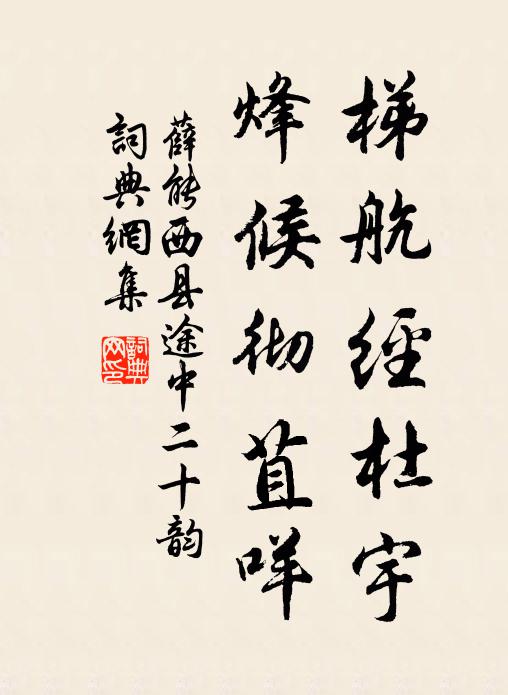 梯航經杜宇
烽候彻苴咩
薛能西县途中二十韵
詞典網集
詞典網印